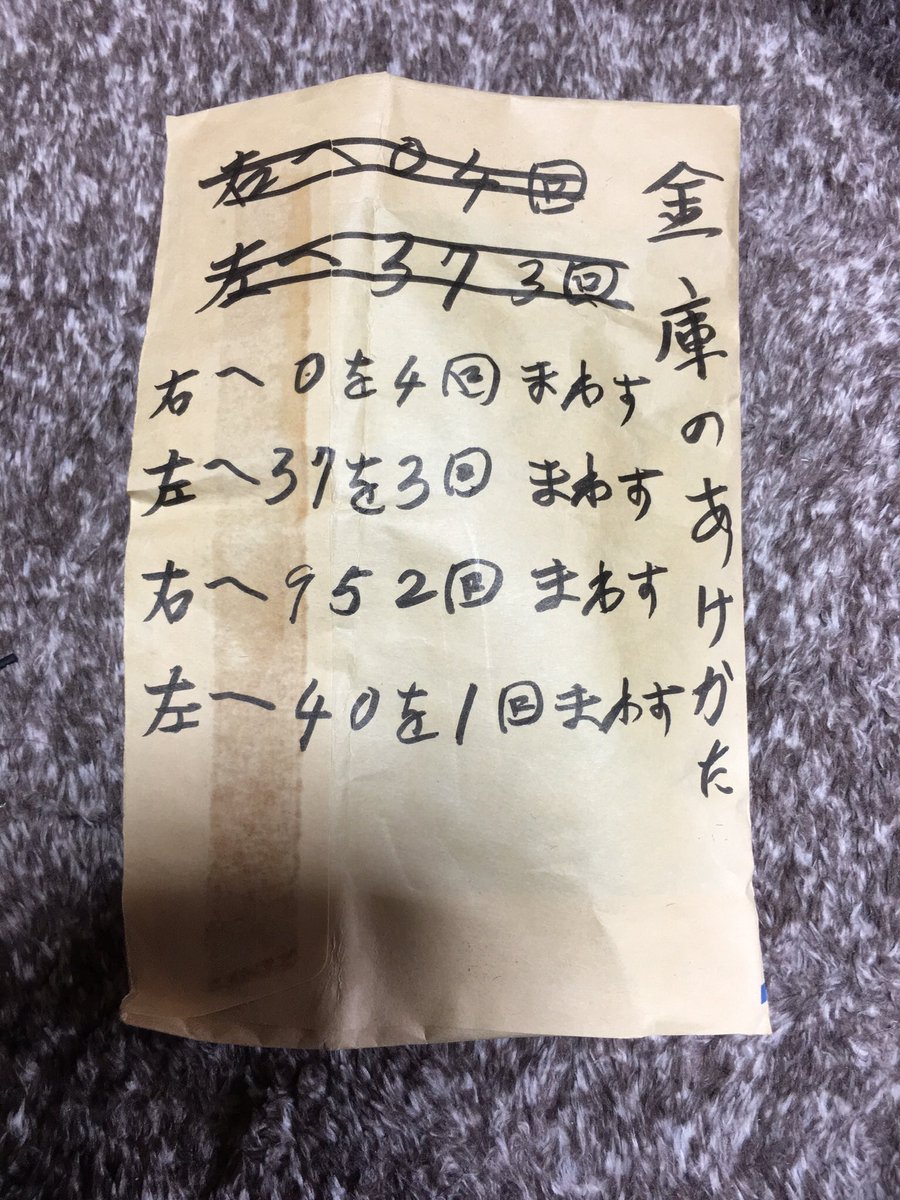 金庫のあけかた
右へ04回
左へ373回
右へ0を4回まわす
左へ37を3回まわす
右へ952回まわす
左へ40を1回まわす